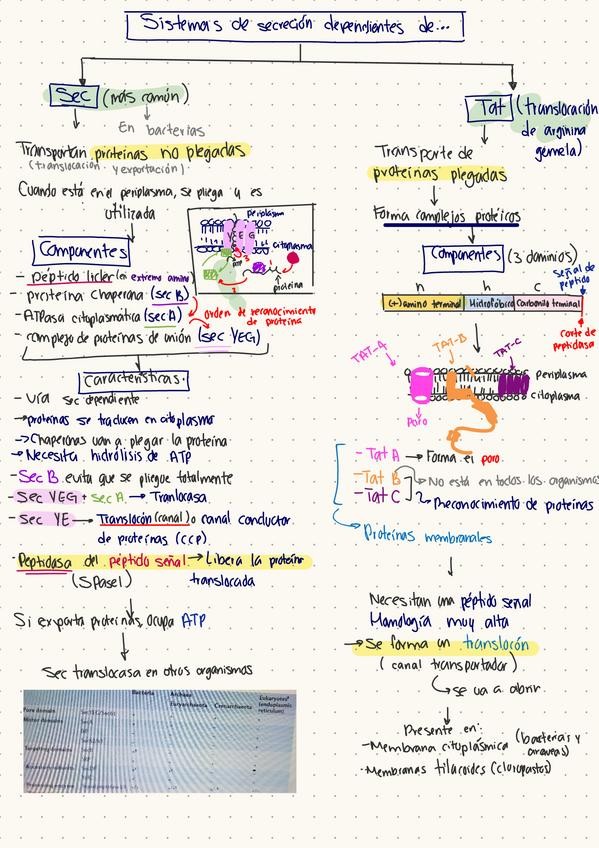 Sistemas de secreción dependientes de...
Sec (más común)
En bacterias
Transportan proteínas no plegadas
(translocación y exportación)
Cuando está en el periplasma, se pliega y es
utilizada
Componentes
- péptido líder (en extremo amino)
- proteína chaperona (sec B)
- ATPasa citoplasmática (sec A)
- complejo de proteínas de unión (sec YEG)
orden de reconocimiento
de proteína
periplasma
Y E G
citoplasma
ATP
proteína
Características.
- Vía sec dependiente
→ proteínas se traducen en citoplasma
→ Chaperonas van a plegar la proteína
→ Necesita hidrólisis de ATP
- Sec B evita que se pliegue totalmente
- Sec YEG + sec A → Tranlocasa
- Sec YE → Translocón (canal) o canal conductor
de proteínas (CCP).
· Peptidasa del péptido señal → Libera la proteína
(SPaseI) translocada
Si exporta proteínas, ocupa ATP
Sec translocasa en otros organismos
Bacteria Archaea Eukaryotes
Euryarchaeota Crenarchaeota (endoplasmic
reticulum)
Pore domain
Motor domains
Targeting domains
Tat (translocación
de arginina
gemela)
Transporte de
proteínas plegadas
Forma complejos protéicos
Componentes (3 dominios)
n h c
Señal de
péptido
(+) amino terminal Hidrofóbico Carbonilo terminal
Corte de
peptidasa
TAT-A TAT-B TAT-C
periplasma
citoplasma
Poro
- Tat A → Forma el poro.
- Tat B → No está en todos los organismos
- Tat C → Reconocimiento de proteínas
Proteínas membranales
Necesitan una péptido señal
Homología muy alta
→ Se forma un translocón
(canal transportador)
→ se va a abrir.
Presente en:
- Membrana citoplásmica (bacterias y
arqueas)
· Membranas tilacoides (cloroplastos)